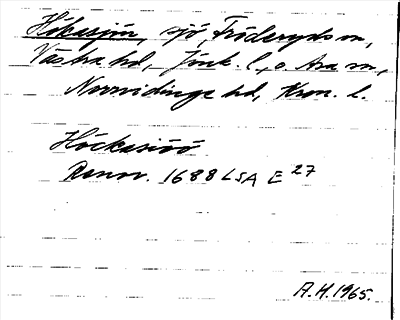 Hökasjön, sjö, Fröderyds sn,
Västra hd, Jönk. l., o. Ara sn,
Norrvidinge hd, Kron. l.
Höckasiöö
Renov. 1688 LSA E 27
A.H. 1965.